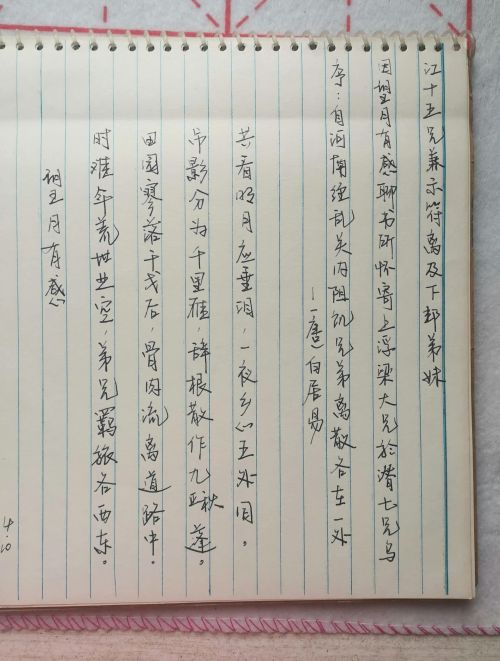 望月有感
时难年荒世业空，弟兄羁旅各西东。
田园寥落干戈后，骨肉流离道路中。
吊影分为千里雁，辞根散作九秋蓬。
共看明月应垂泪，一夜乡心五处同。
—（唐）白居易
序：自河南经乱关内阻饥兄弟离散各在一处
因望月有感聊书所怀寄上浮梁大兄於潜七兄乌
江十五兄兼示符离及下邽弟妹
4.10